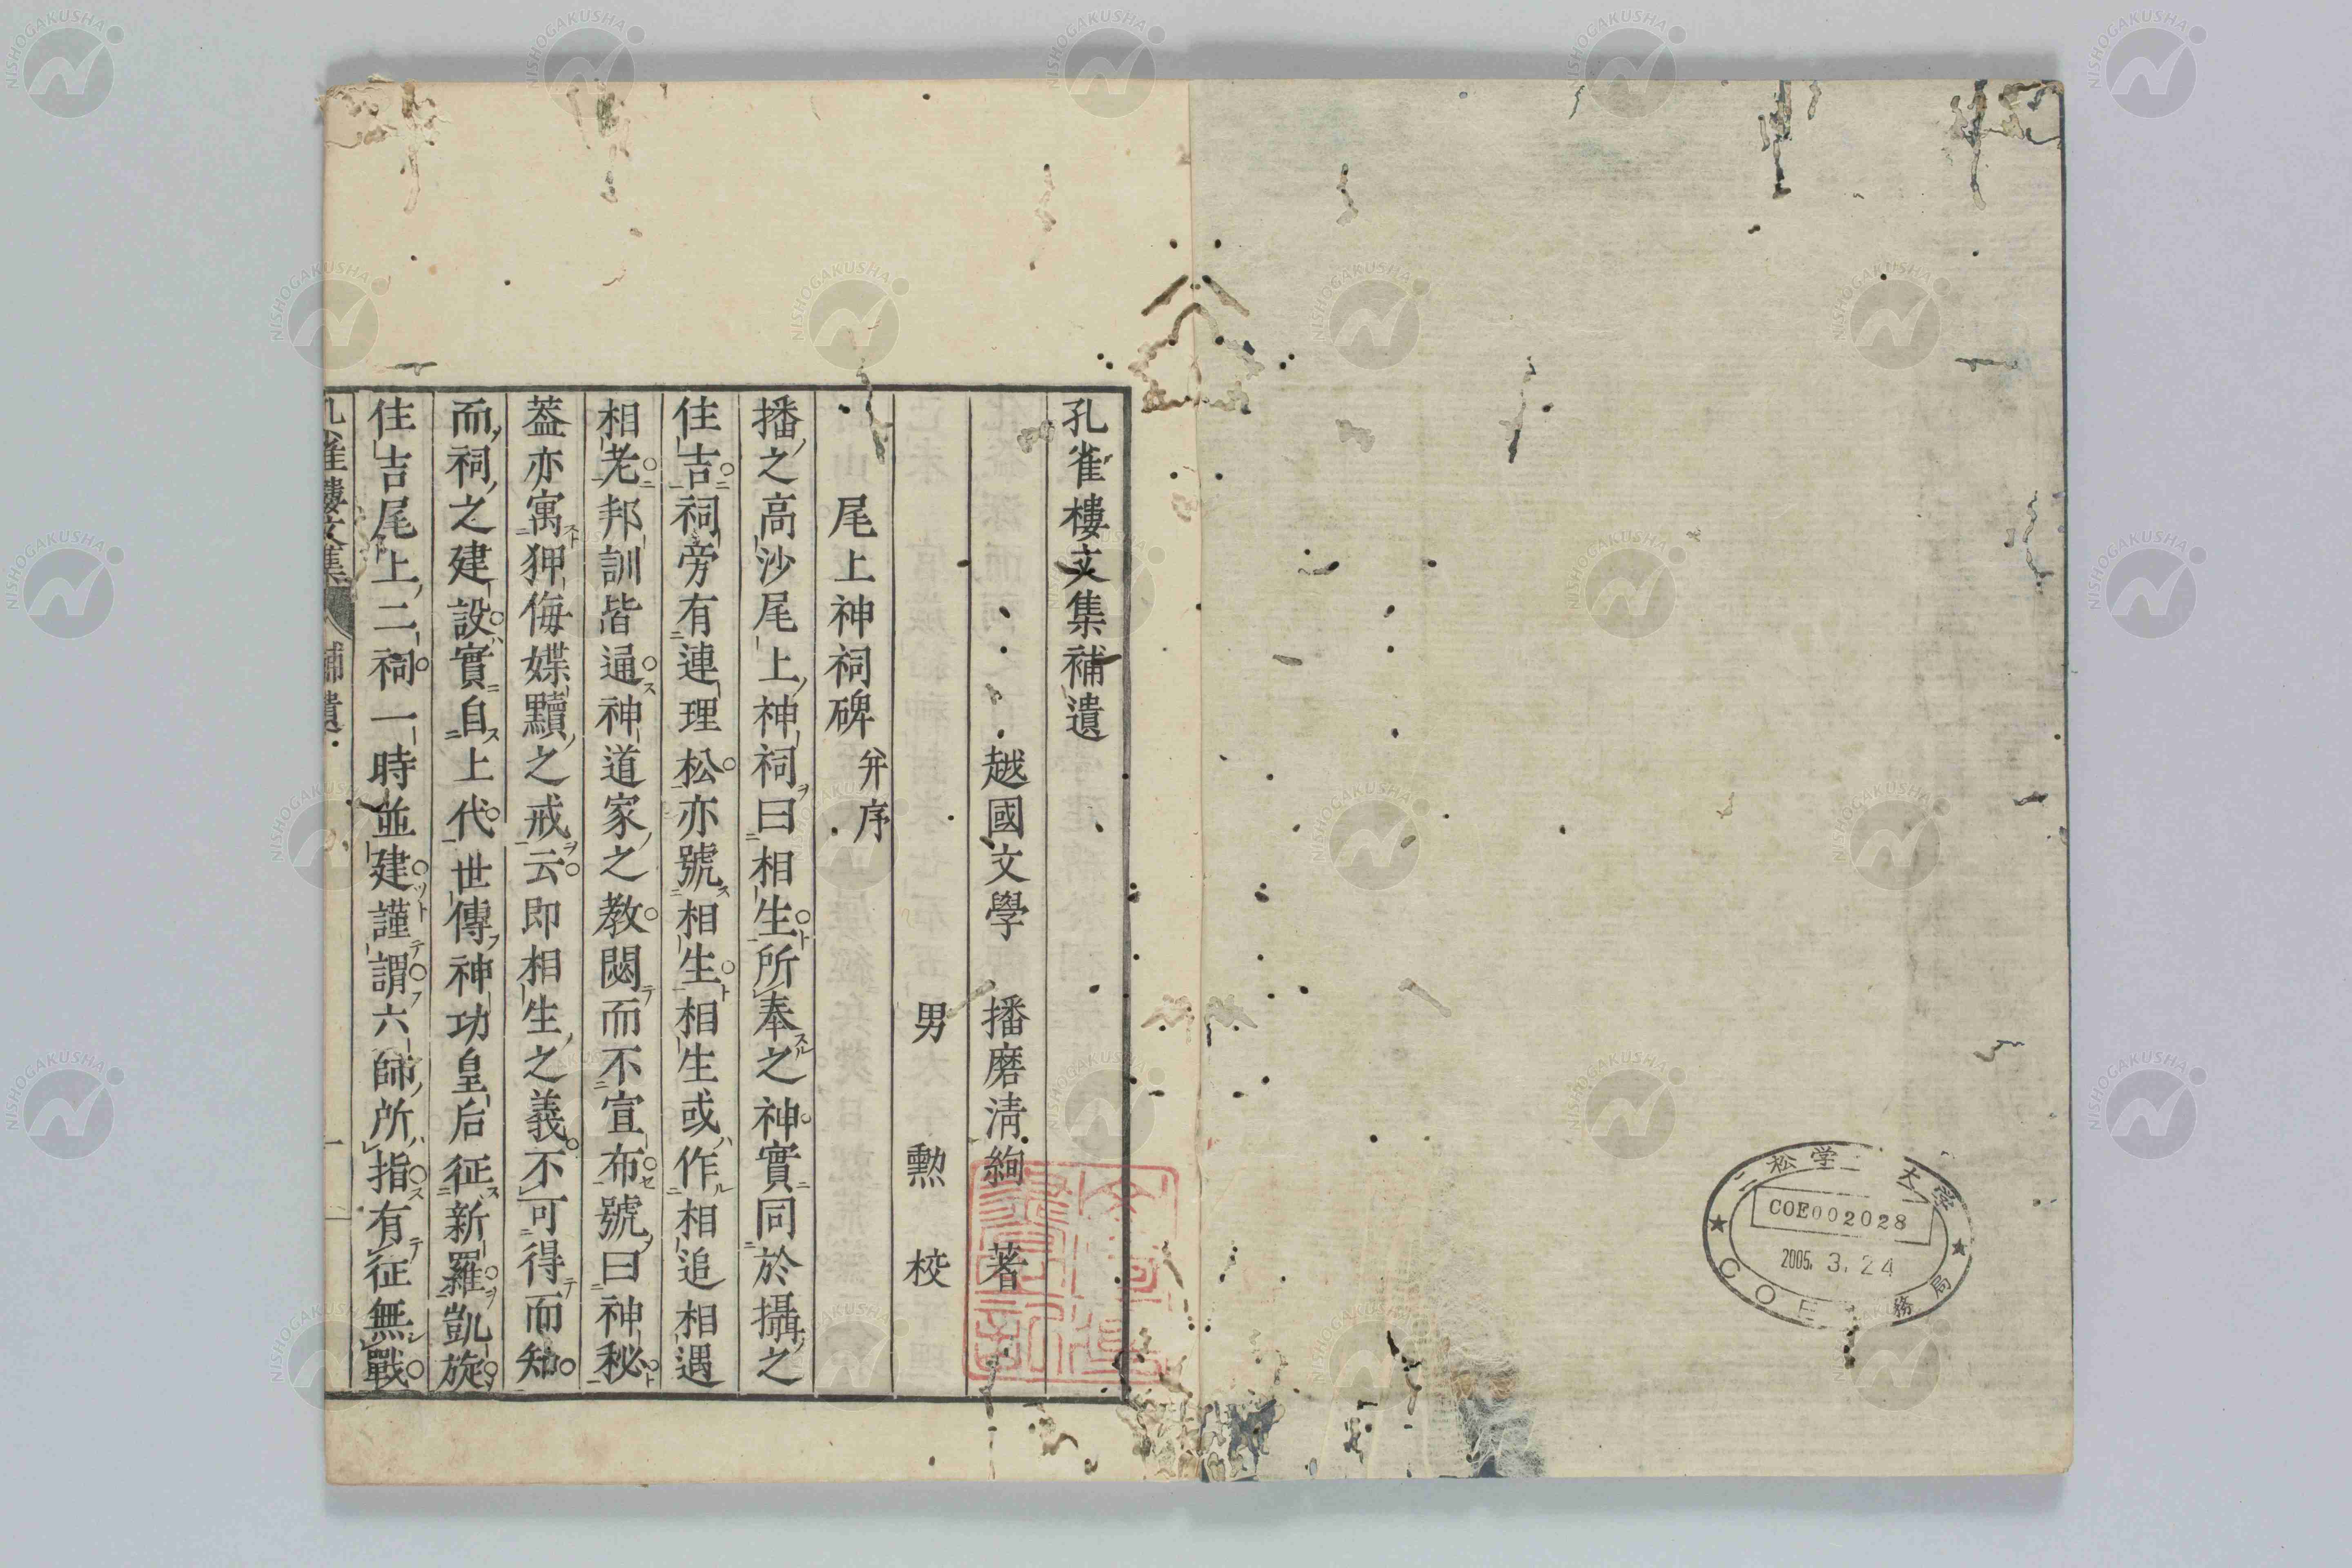 孔雀樓文集補遺
越國文學 播磨清絢 著
男 勲 校
尾上神祠碑 并序
播之高沙尾上神祠曰相生所奉之神實同於攝之
住吉祠旁有連理松亦號相生相生或作相追相遇
相老邦訓皆通神道家之教閟而不宣布號曰神秘
蓋亦寓狎侮媟黷之戒云即相生之義不可得而知
而祠之建設實自上代世傳神功皇后征新羅凱旋
住吉尾上二祠一時並建謹謂六師所指有征無戰
孔雀樓文集 補遺 一
二松学 大学
COE002028
2005. 3. 24
COE 務局
NISHOGAKUSHA